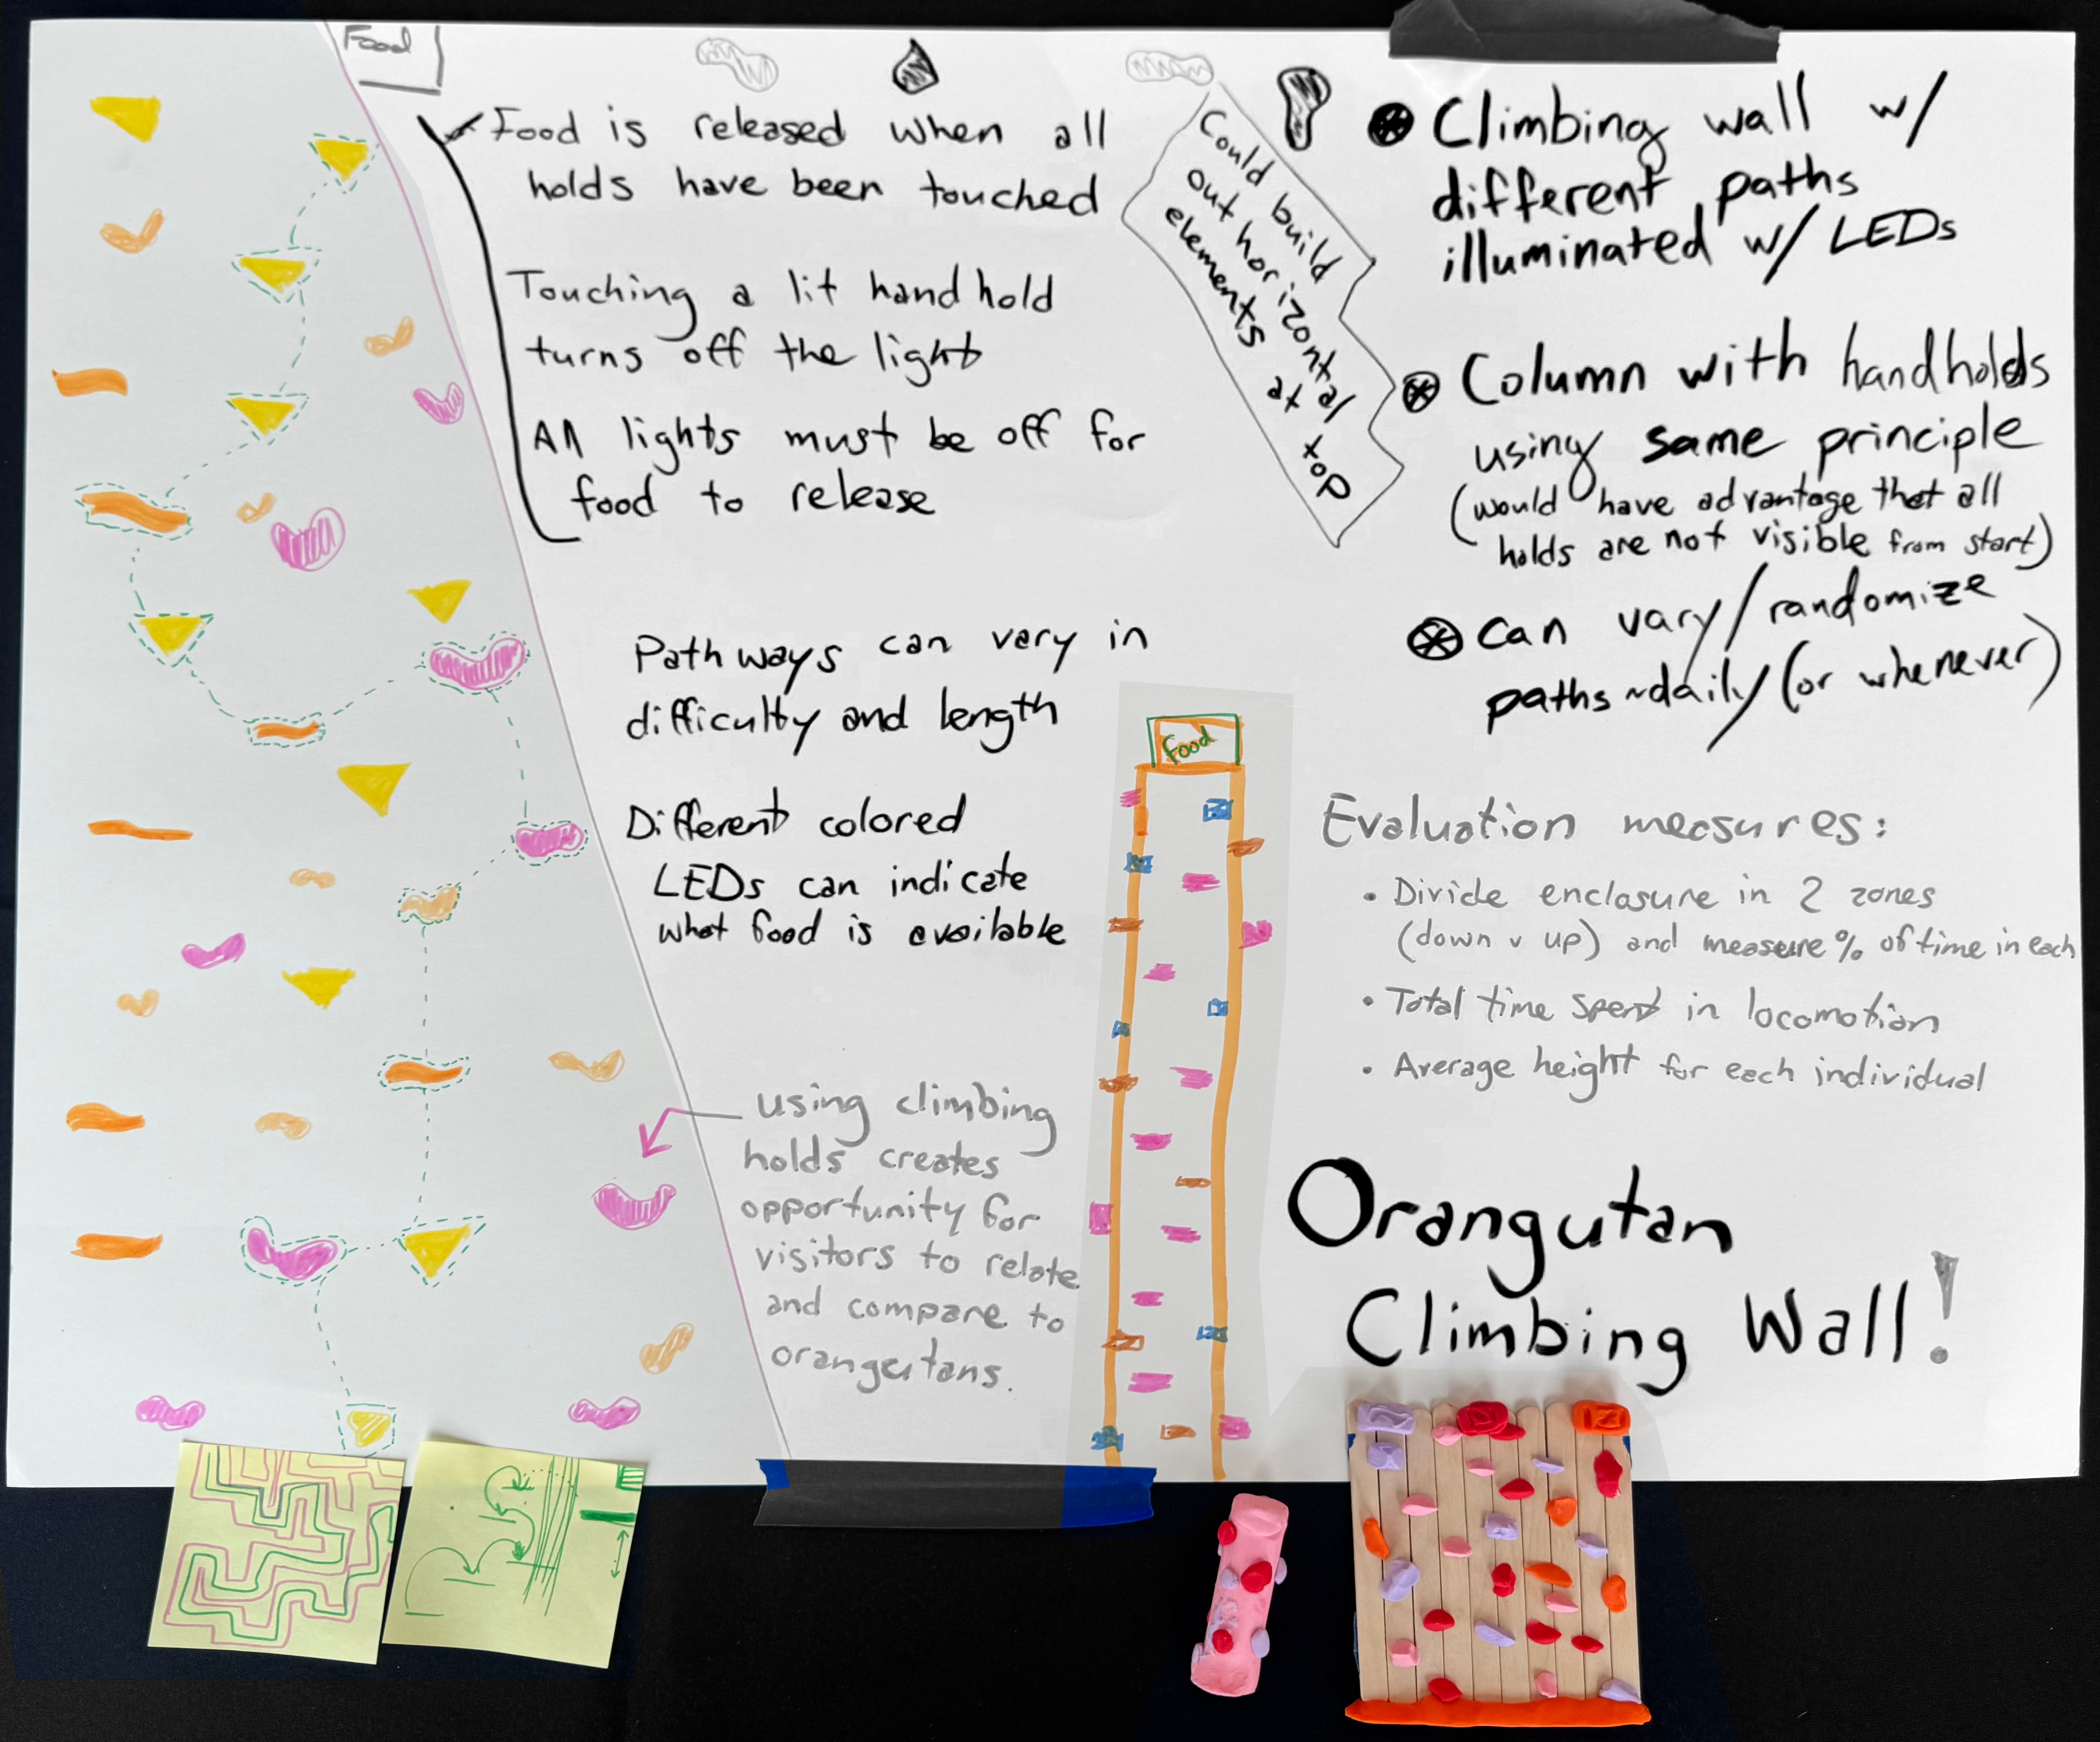 Food
Food is released when all
holds have been touched
Touching a lit handhold
turns off the light
All lights must be off for
food to release
Pathways can vary in
difficulty and length
Different colored
LEDs can indicate
what food is available
using climbing
holds creates
opportunity for
visitors to relate
and compare to
orangutans.
Could build
out horizontal
elements
at top
Food
Climbing wall w/
different paths
illuminated w/ LEDs
Column with handholds
using same principle
(would have advantage that all
holds are not visible from start)
Can vary/randomize
paths ~daily (or whenever)
Evaluation measures:
• Divide enclosure in 2 zones
(down v up) and measure % of time in each
• Total time spent in locomotion
• Average height for each individual
Orangutan
Climbing Wall!